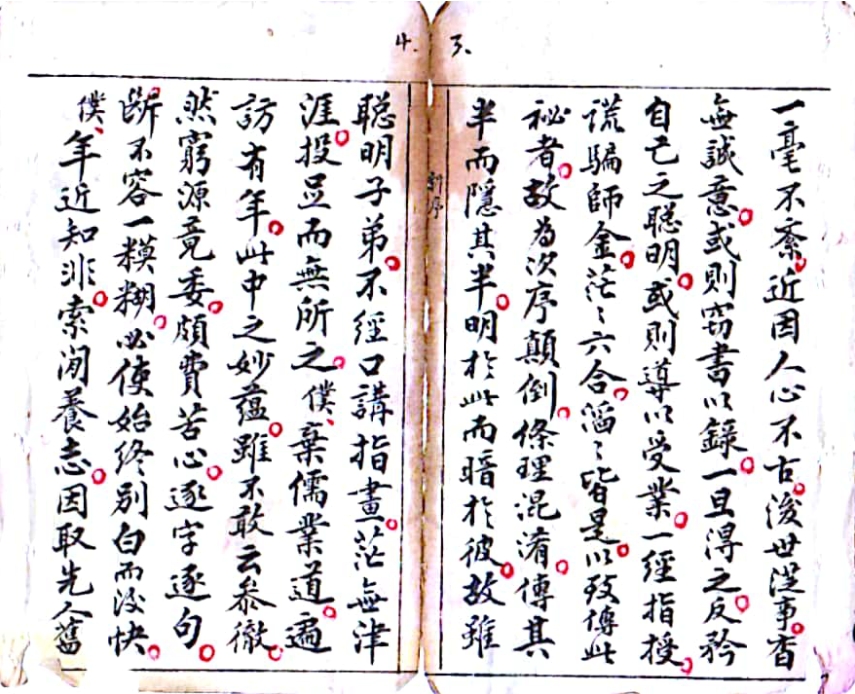 3.
一毫不紊。近因人心不古。後世從事。杳
無誠意。或則窃書以錄。一旦得之。反矜
自己之聰明。或則導以受業。一經指授。
謊騙師金。茫〻六合。滔〻皆是。以致傳此
秘者。故為次序顛倒。條理混淆。傳其
半而隱其半。明於此而暗於彼。故雖
新序
4.
聰明子弟。不經口講指畫。茫無津
涯。投足而無所之。僕、棄儒業道。遍
訪有年。此中之妙蘊。雖不敢云參徹。
然窮源竟委。頗費苦心。逐字逐句。
斷不容一糢糊。必使始終別白而後快。
僕、年近知非。索閒養志。因取先人舊